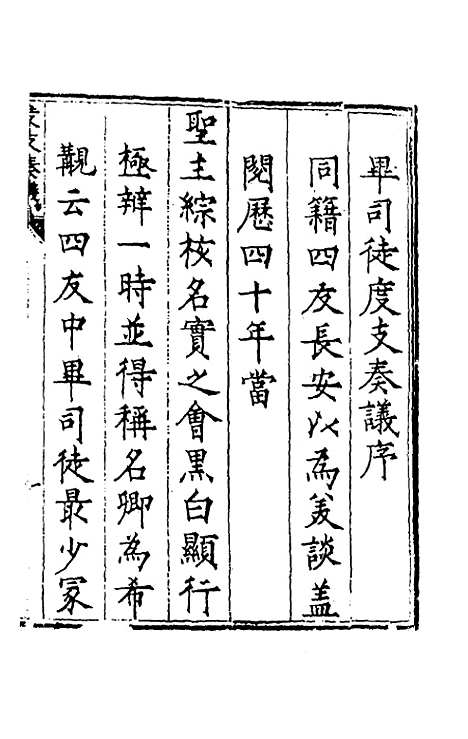 畢司徒度支奏議序
同籍四友長安以為美談盖
閱歷四十年當
聖主綜核名實之會黒白顯行
極辨一時並得稱名卿為希
覯云四友中畢司徒最少冡
度支奏議